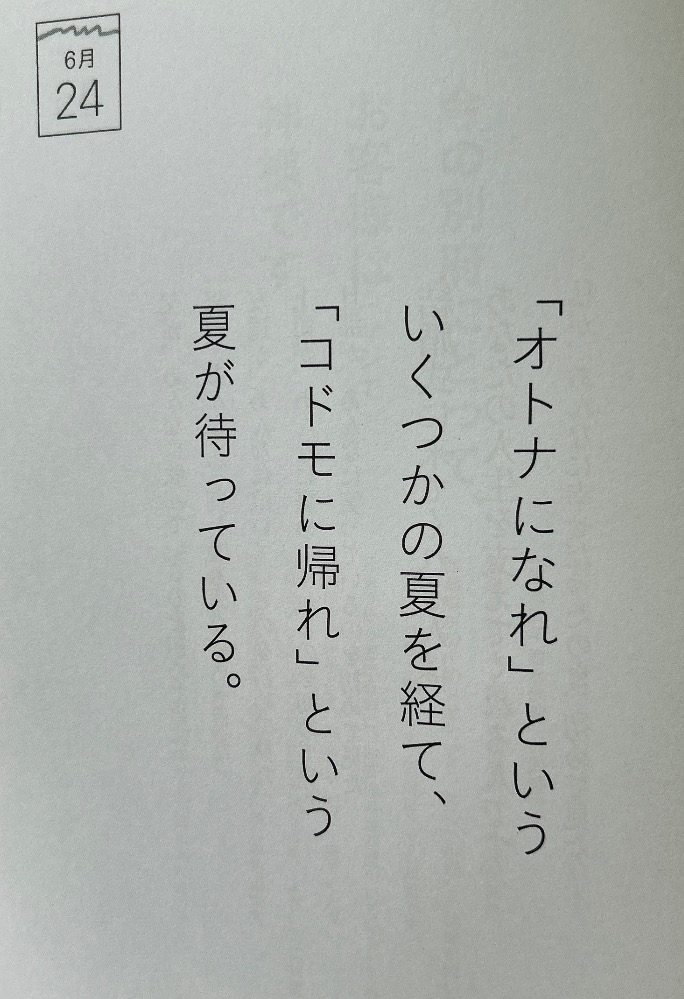 6月
24
「オトナになれ」という
いくつかの夏を経て、
「コドモに帰れ」という
夏が待っている。